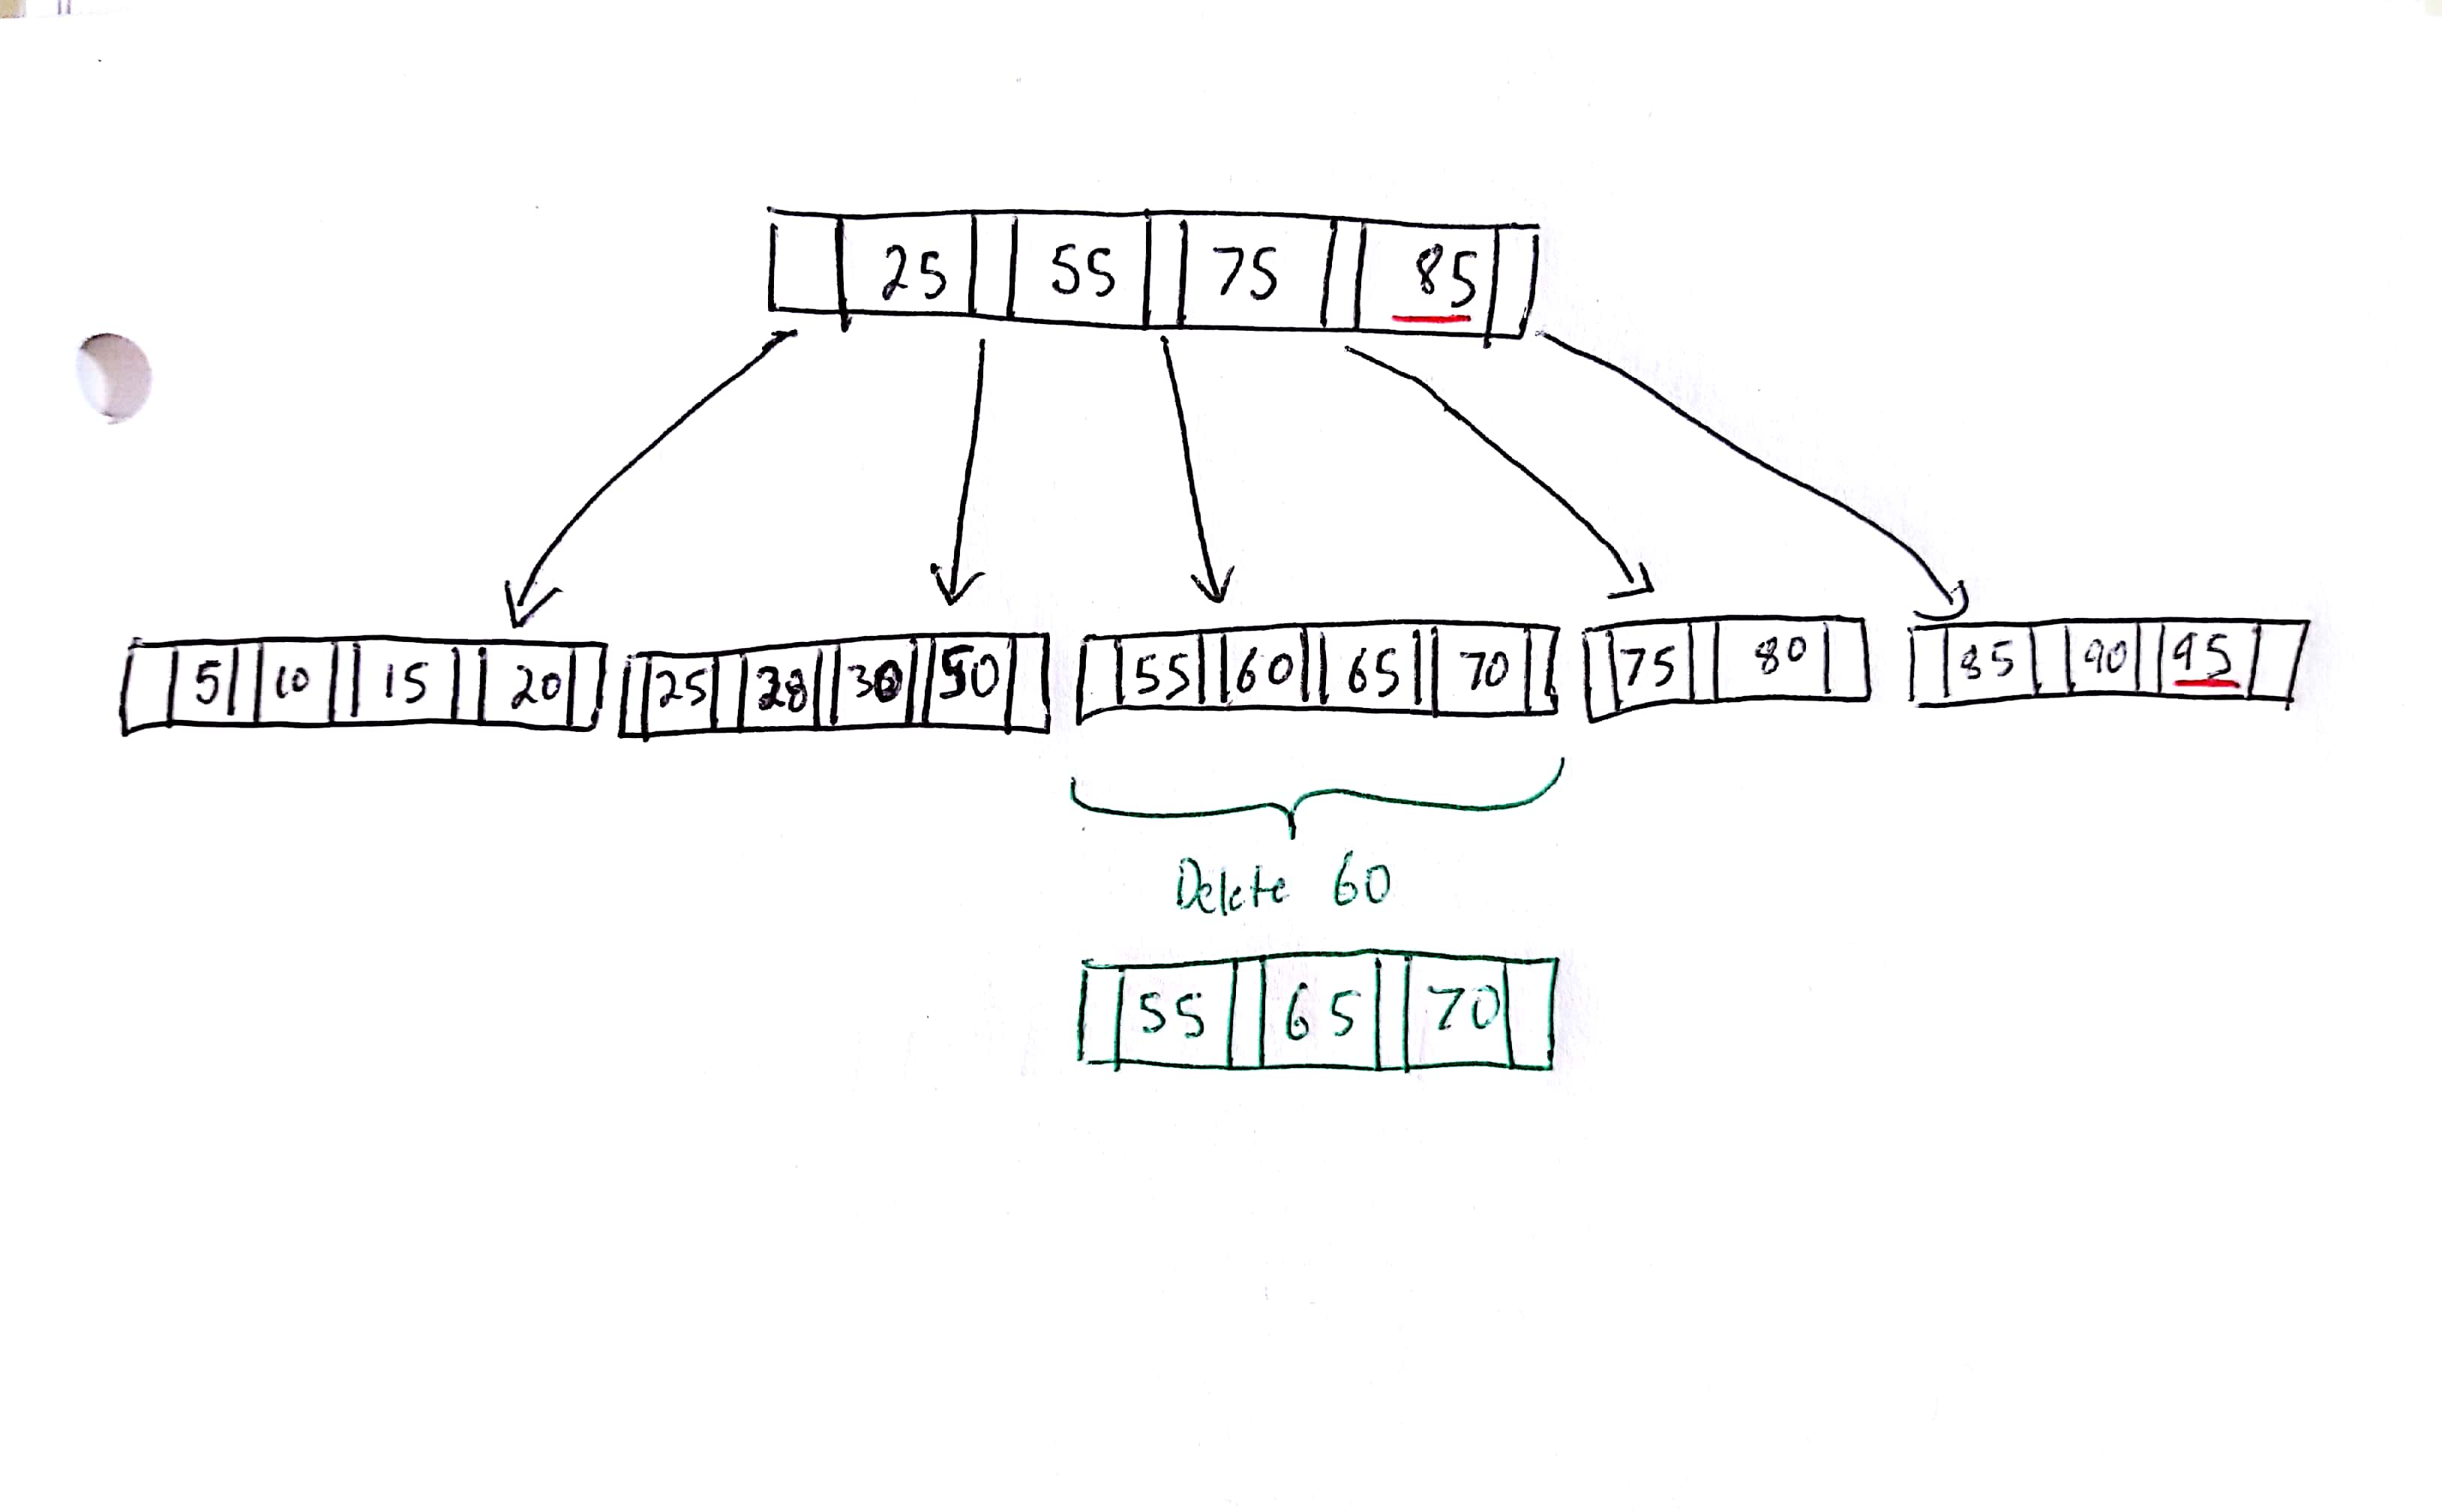 25 55 75 85
5 10 15 20 25 28 30 50 55 60 65 70 75 80 85 90 95
Delete 60
55 65 70